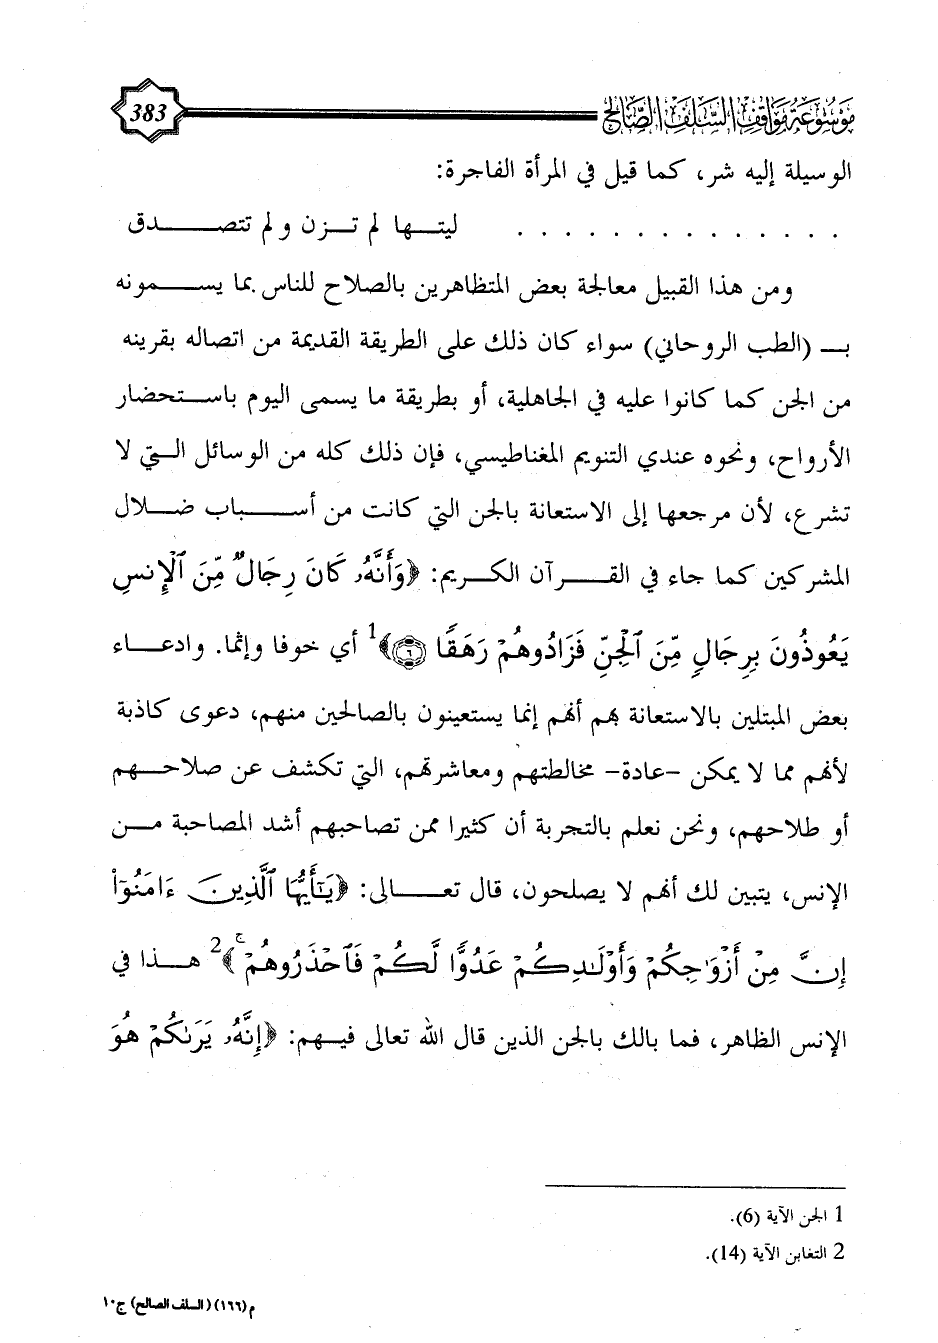 موسوعة مواقف السلف الصالح
383
الوسيلة إليه شر، كما قيل في المرأة الفاجرة:
. . . . . . . . . . . . . . ليتـــها لم تـــزن ولم تتصـــــــدق
ومن هذا القبيل معالجة بعض المتظاهرين بالصلاح للناس بما يســـــمونه
بـــ (الطب الروحاني) سواء كان ذلك على الطريقة القديمة من اتصاله بقرينه
من الجن كما كانوا عليه في الجاهلية، أو بطريقة ما يسمى اليوم باســـتحضار
الأرواح، ونحوه عندي التنويم المغناطيسي، فإن ذلك كله من الوسائل الـــتي لا
تشرع، لأن مرجعها إلى الاستعانة بالجن التي كانت من أســـــباب ضـــلال
المشركين كما جاء في القـــــرآن الكـــريم: ﴿وَأَنَّهُۥ كَانَ رِجَالٌ مِّنَ ٱلْإِنسِ
يَعُوذُونَ بِرِجَالٍ مِّنَ ٱلْجِنِّ فَزَادُوهُمْ رَهَقًا ۝٦﴾1 أي خوفا وإثما. وادعـــاء
بعض المبتلين بالاستعانة بهم أنهم إنما يستعينون بالصالحين منهم، دعوى كاذبة
لأنهم مما لا يمكن -عادة- مخالطتهم ومعاشرتهم، التي تكشف عن صلاحـــهم
أو طلاحهم، ونحن نعلم بالتجربة أن كثيرا ممن تصاحبهم أشد المصاحبة مـــن
الإنس، يتبين لك أنهم لا يصلحون، قال تعـــــالى: ﴿يَٰٓأَيُّهَا ٱلَّذِينَ ءَامَنُوٓا۟
إِنَّ مِنْ أَزْوَٰجِكُمْ وَأَوْلَٰدِكُمْ عَدُوًّا لَّكُمْ فَٱحْذَرُوهُمْ ۚ﴾2 هـــذا في
الإنس الظاهر، فما بالك بالجن الذين قال الله تعالى فيـــهم: ﴿إِنَّهُۥ يَرَىٰكُمْ هُوَ
1 الجن الآية (6).
2 التغابن الآية (14).
م(١٦٦) (السلف الصالح) ج١٠